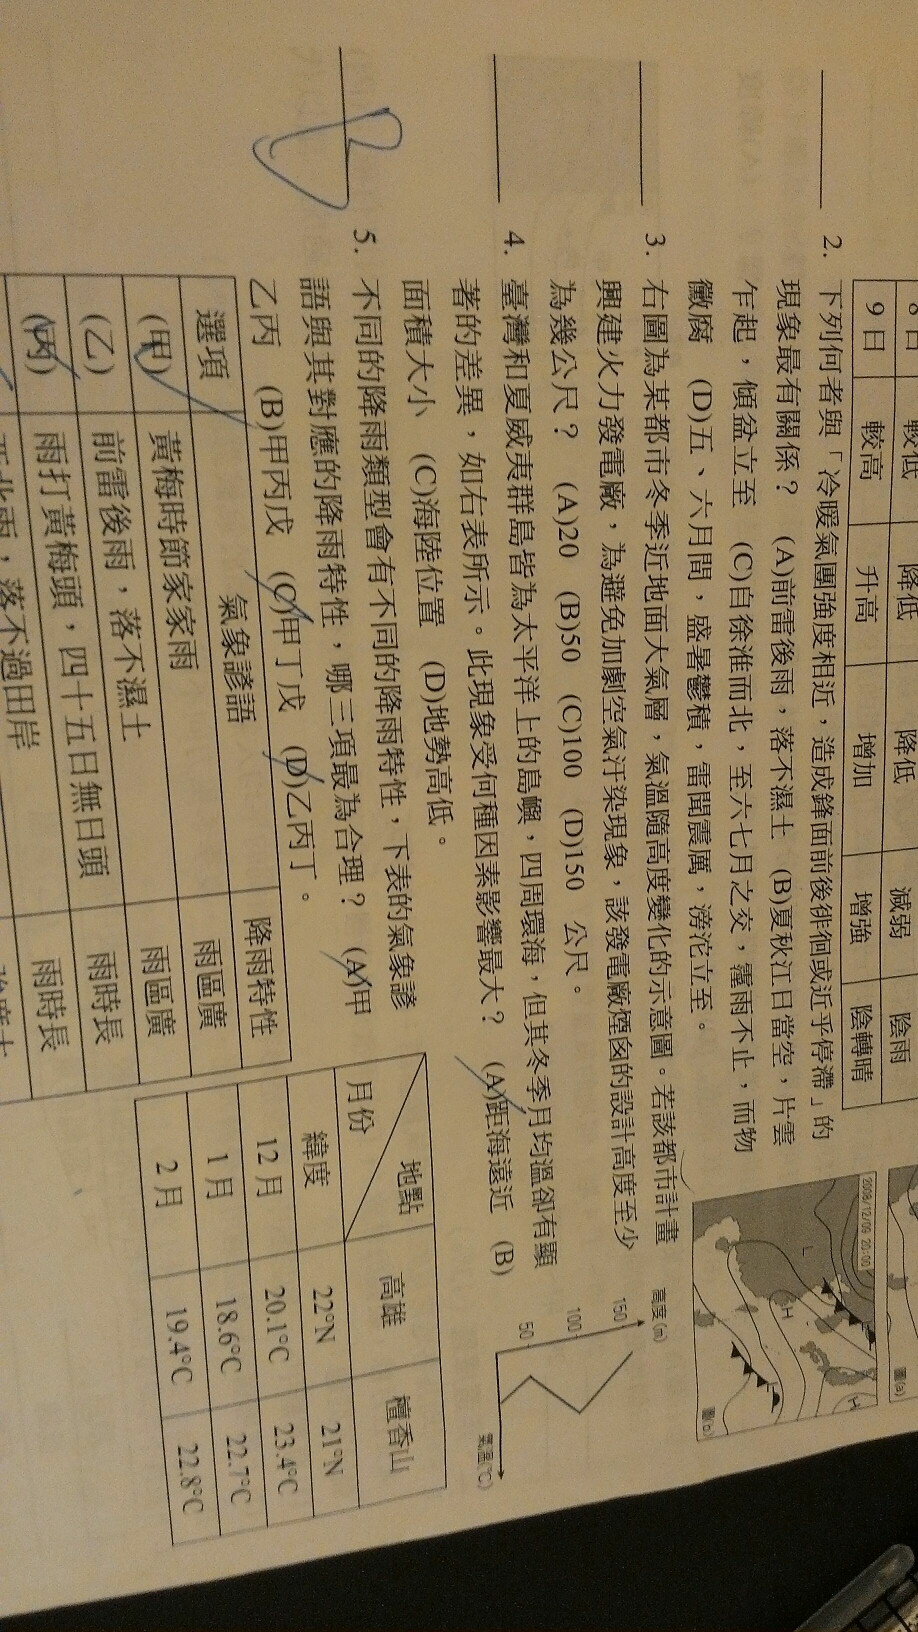 較低 降低 降低 減弱 陰雨
9日 較高 升高 增加 增強 陰轉晴
2. 下列何者與「冷暖氣團強度相近，造成鋒面前後徘徊或近乎停滯」的
現象最有關係？ (A)前雷後雨，落不濕土 (B)夏秋江日當空，片雲
乍起，傾盆立至 (C)自徐淮而北，至六七月之交，霪雨不止，而物
黴腐 (D)五、六月間，盛暑鬱積，雷聞震厲，滂沱立至。
2009/12/09 20:00
L
H
H
圖(a)
圖(b)
3. 右圖為某都市冬季近地面大氣層，氣溫隨高度變化的示意圖。若該都市計畫
興建火力發電廠，為避免加劇空氣汙染現象，該發電廠煙囪的設計高度至少
為幾公尺？ (A)20 (B)50 (C)100 (D)150 公尺。
高度(m)
150
100
50
氣溫(°C)
4. 臺灣和夏威夷群島皆為太平洋上的島嶼，四周環海，但其冬季月均溫卻有顯
著的差異，如右表所示。此現象受何種因素影響最大？ (A)距海遠近 (B)
面積大小 (C)海陸位置 (D)地勢高低。
地點
月份 高雄 檀香山
緯度 22°N 21°N
12月 20.1°C 23.4°C
1月 18.6°C 22.7°C
2月 19.4°C 22.8°C
5. 不同的降雨類型會有不同的降雨特性，下表的氣象諺
語與其對應的降雨特性，哪三項最為合理？ (A)甲
乙丙 (B)甲丙戊 (C)甲丁戊 (D)乙丙丁。
選項 氣象諺語 降雨特性
(甲) 黃梅時節家家雨 雨區廣
(乙) 前雷後雨，落不濕土 雨區廣
(丙) 雨打黃梅頭，四十五日無日頭 雨時長
北雨，落不過田岸 雨時長